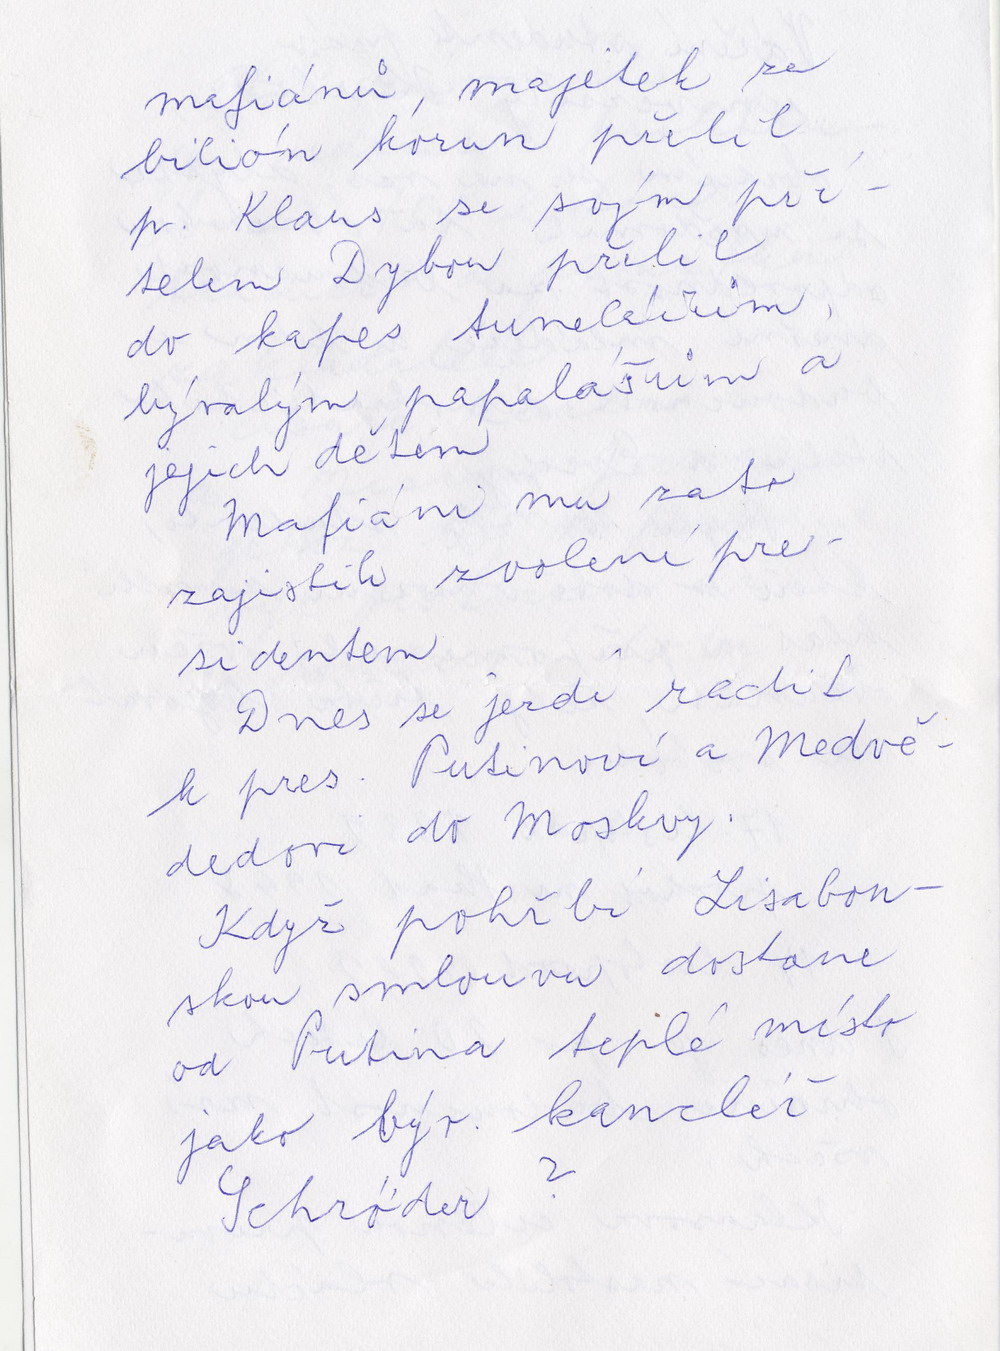 mafiánů, majetek za
bilión korun přelil
p. Klaus se svým pří-
telem Dybou přelil
do kapes tunelářům,
bývalým papalášům a
jejich dětem
Mafiáni mu zato
zajistili zvolení pre-
sidentem
Dnes se jezdí radit
k pres. Putinovi a Medvě-
dedovi do Moskvy.
Když pohřbí Lisabon-
skou smlouvu dostane
od Putina teplé místo
jako býv. kancléř
Schröder ?